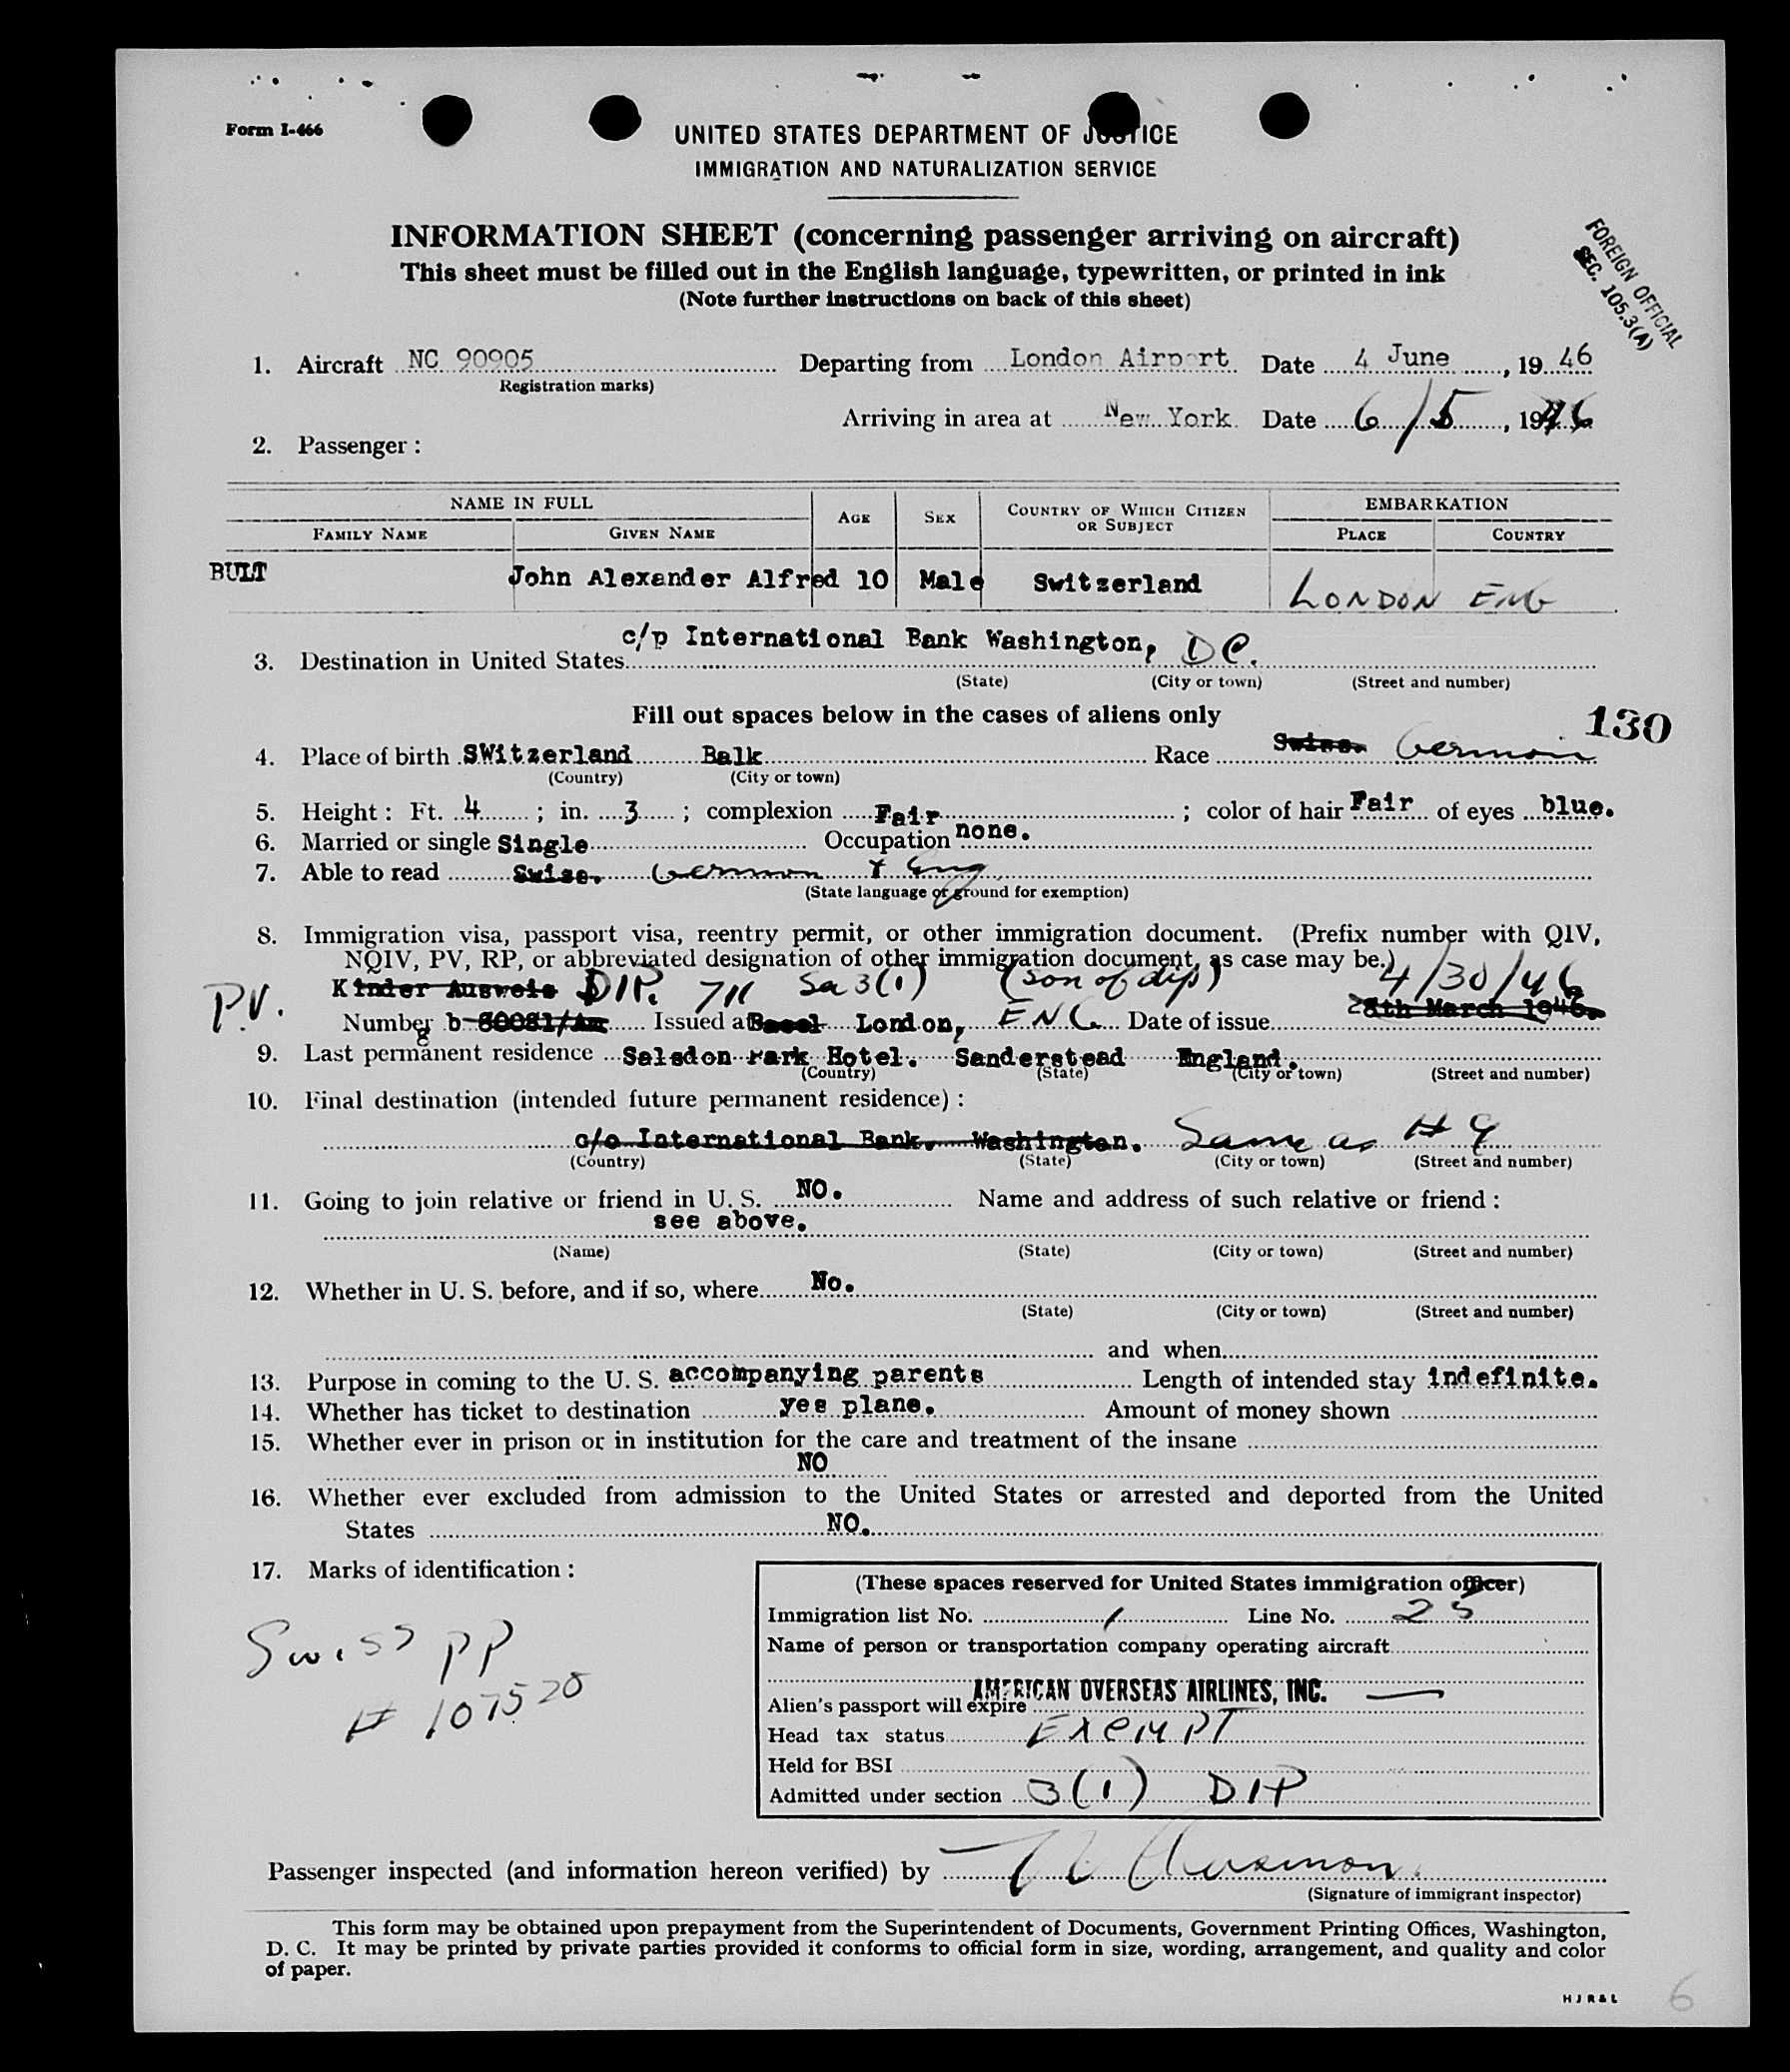 Form I-466
UNITED STATES DEPARTMENT OF JUSTICE
IMMIGRATION AND NATURALIZATION SERVICE
INFORMATION SHEET (concerning passenger arriving on aircraft)
This sheet must be filled out in the English language, typewritten, or printed in ink
(Note further instructions on back of this sheet)
FOREIGN OFFICIAL
SEC. 105.3(A)
1. Aircraft NC 90905 Departing from London Airport Date 4 June, 19 46
(Registration marks)
Arriving in area at New York Date 6/5, 1946
2. Passenger :
NAME IN FULL EMBARKATION
AGE SEX COUNTRY OF WHICH CITIZEN OR SUBJECT
FAMILY NAME GIVEN NAME PLACE COUNTRY
BULT John Alexander Alfred 10 Male Switzerland LONDON ENG
c/p International Bank Washington, DC.
3. Destination in United States
(State) (City or town) (Street and number)
Fill out spaces below in the cases of aliens only
130
4. Place of birth SWitzerland Balk Race Swiss. German
(Country) (City or town)
5. Height : Ft. 4 ; in. 3 ; complexion Fair ; color of hair Fair of eyes blue.
6. Married or single Single Occupation none.
7. Able to read Swiss. German & Eng
(State language or ground for exemption)
8. Immigration visa, passport visa, reentry permit, or other immigration document. (Prefix number with QIV,
NQIV, PV, RP, or abbreviated designation of other immigration document, as case may be.)
P.V. Kinder Ausweis DIP. 711 Sa 3(1) (son of dip) 4/30/46
Number b 80081/Am Issued at Basel London, ENG Date of issue 28th March 1946.
9. Last permanent residence Selsdon Park Hotel. Sanderstead England.
(Country) (State) (City or town) (Street and number)
10. Final destination (intended future permanent residence) :
c/o International Bank. Washington. Same as # 9
(Country) (State) (City or town) (Street and number)
11. Going to join relative or friend in U. S. NO. Name and address of such relative or friend :
see above.
(Name) (State) (City or town) (Street and number)
12. Whether in U. S. before, and if so, where No.
(State) (City or town) (Street and number)
and when
13. Purpose in coming to the U. S. accompanying parents Length of intended stay indefinite.
14. Whether has ticket to destination yes plane. Amount of money shown
15. Whether ever in prison or in institution for the care and treatment of the insane
NO
16. Whether ever excluded from admission to the United States or arrested and deported from the United
States NO.
17. Marks of identification :
Swiss PP
# 107520
(These spaces reserved for United States immigration officer)
Immigration list No. 1 Line No. 25
Name of person or transportation company operating aircraft
AMERICAN OVERSEAS AIRLINES, INC.
Alien's passport will expire —
Head tax status EXEMPT
Held for BSI
Admitted under section 3(1) DIP
Passenger inspected (and information hereon verified) by
(Signature of immigrant inspector)
This form may be obtained upon prepayment from the Superintendent of Documents, Government Printing Offices, Washington,
D. C. It may be printed by private parties provided it conforms to official form in size, wording, arrangement, and quality and color
of paper.
H J R & L
6